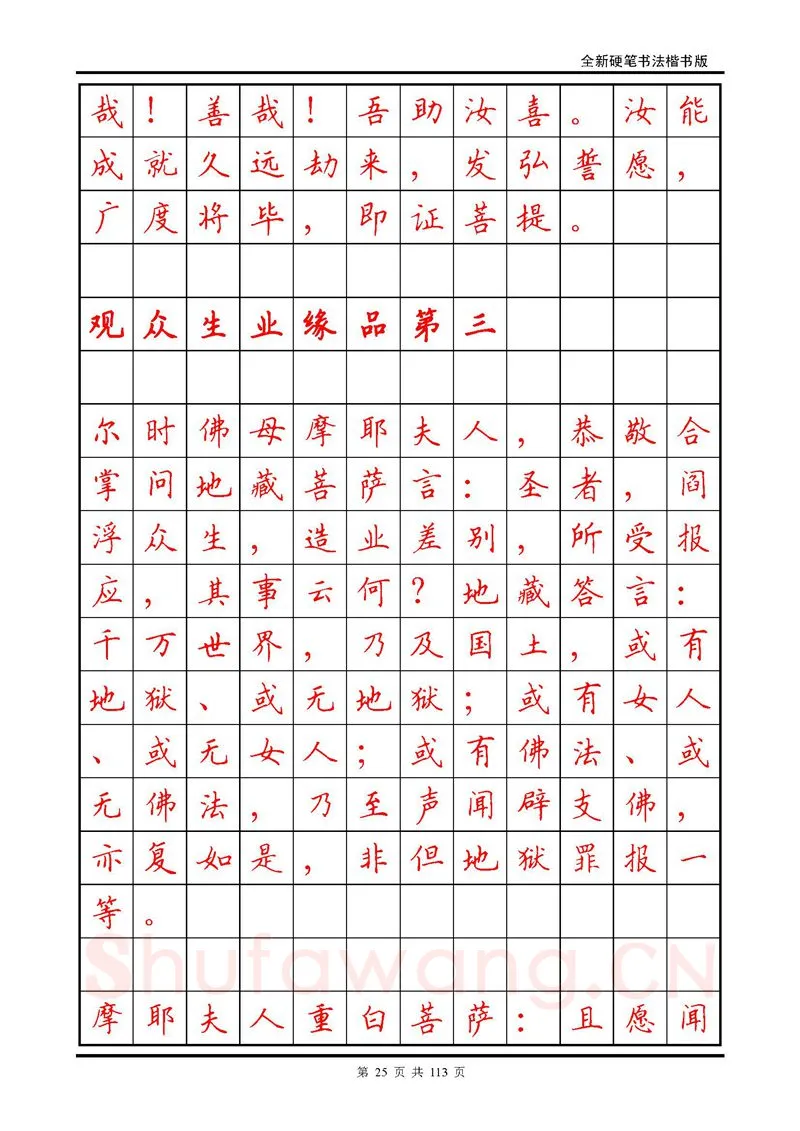 全新硬笔书法楷书版
哉！善哉！吾助汝喜。汝能
成就久远劫来，发弘誓愿，
广度将毕，即证菩提。
观众生业缘品第三
尔时佛母摩耶夫人，恭敬合
掌问地藏菩萨言：圣者，阎
浮众生，造业差别，所受报
应，其事云何？地藏答言：
千万世界，乃及国土，或有
地狱、或无地狱；或有女人
、或无女人；或有佛法、或
无佛法，乃至声闻辟支佛，
亦复如是，非但地狱罪报一
等。
Shufawang.CN
摩耶夫人重白菩萨：且愿闻
第 25 页 共 113 页